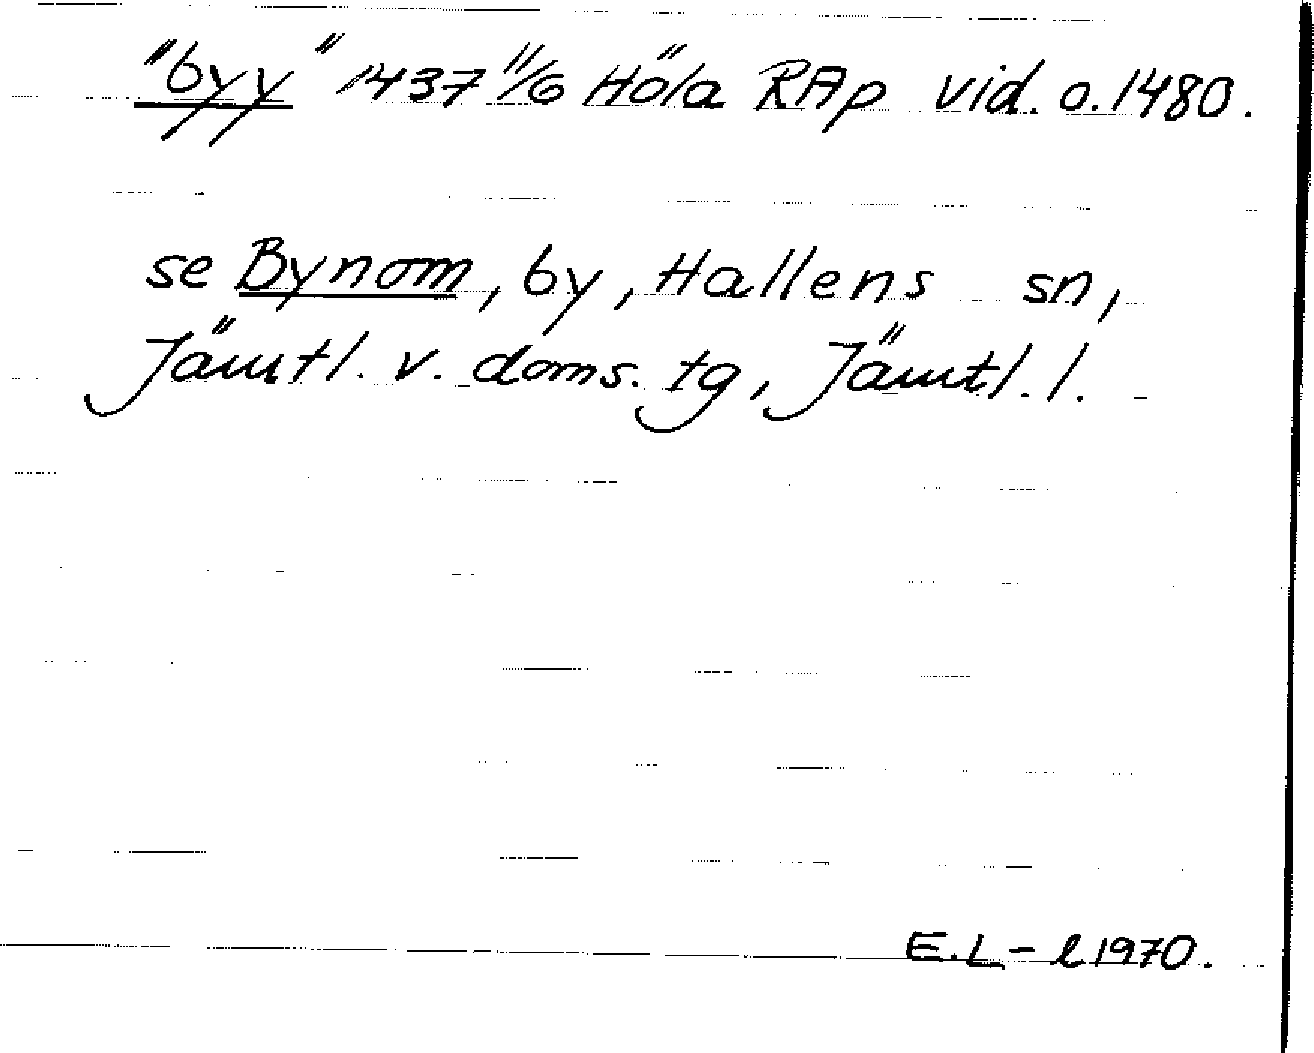 "byy" 1437 11/6 Höla RAp vid. o. 1480.
se Bynom, by, Hallens sn,
Jämtl. v. doms. tg, Jämtl. l.
E.L-l 1970.